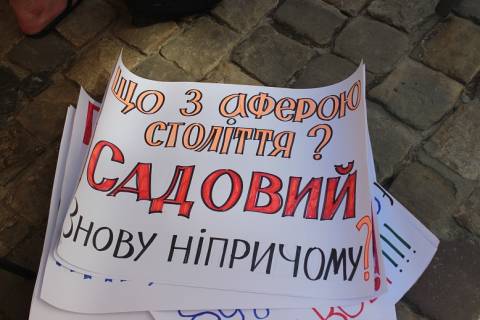 Що з аферою
століття?
Садовий
Знову ніпричому?